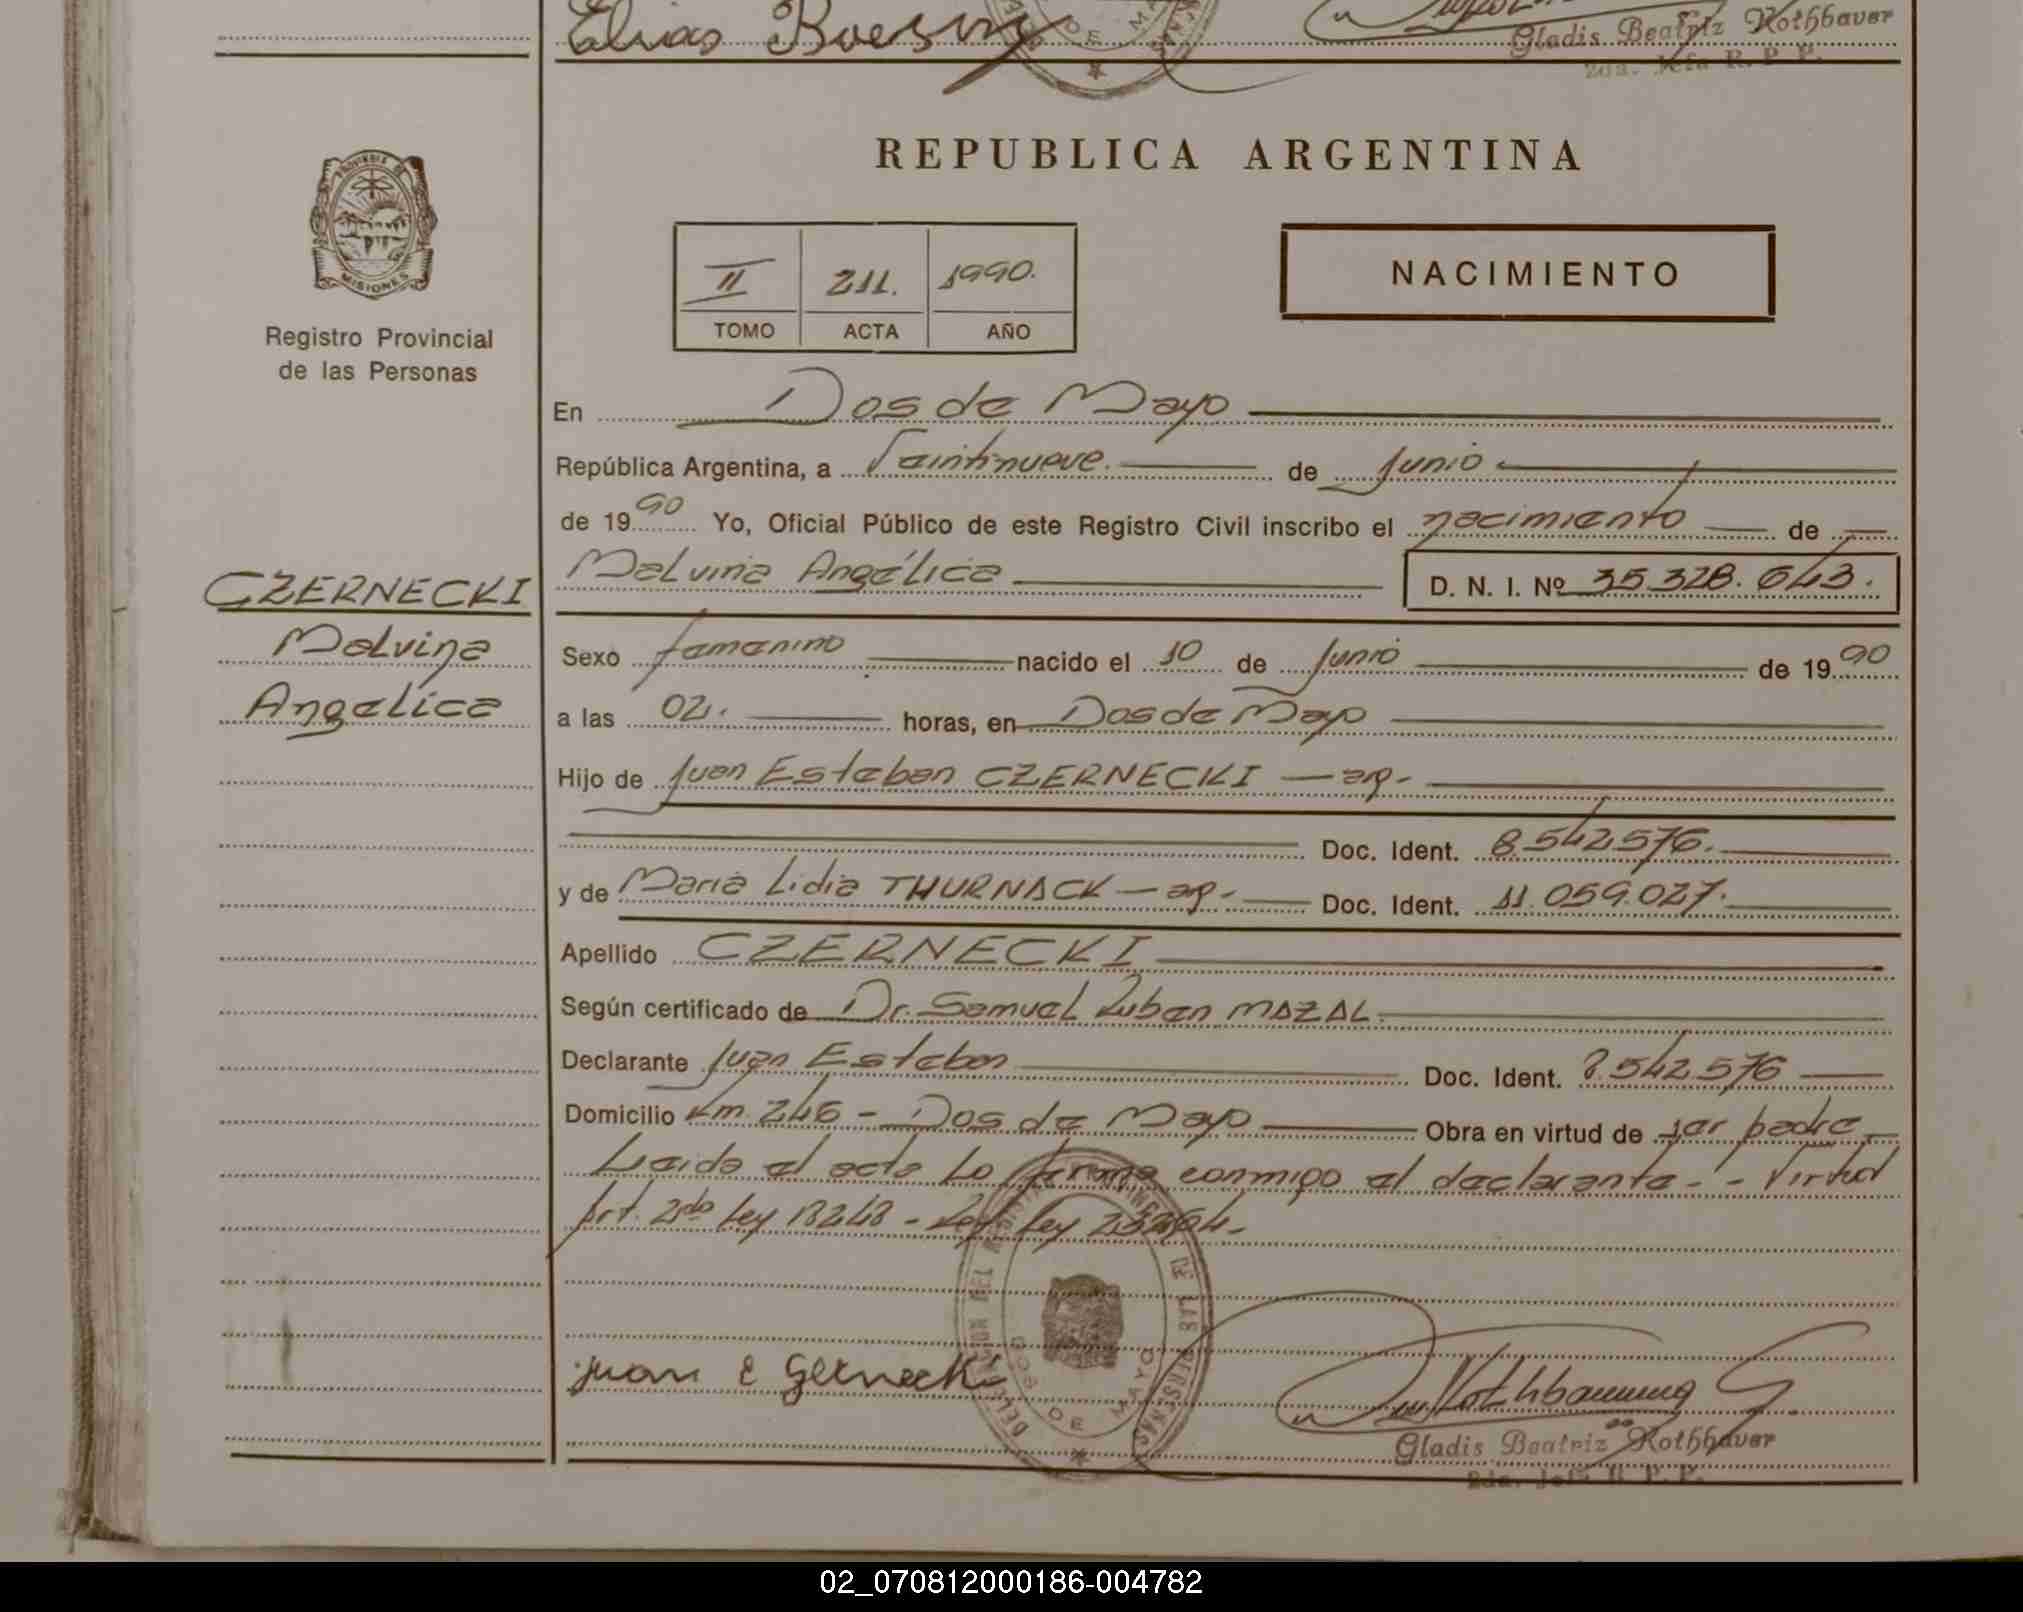 Elias Boesing
Gladis Beatriz Rothbauer
2da. Jefa R. P. P.
REPUBLICA ARGENTINA
PROVINCIA DE MISIONES
Registro Provincial
de las Personas
II 211. 1990.
TOMO ACTA AÑO
NACIMIENTO
En Dos de Mayo
República Argentina, a Veintinueve. de Junio
de 1990 Yo, Oficial Público de este Registro Civil inscribo el nacimiento de
Malvina Angélica D. N. I. Nº 35.328.643.
CZERNECKI
Malvina
Angelica
Sexo femenino nacido el 10 de Junio de 1990
a las 02. horas, en Dos de Mayo
Hijo de Juan Esteban CZERNECKI — arg-
Doc. Ident. 8.542.576.
y de Maria Lidia THURNACK — arg- Doc. Ident. 11.059.027.
Apellido CZERNECKI
Según certificado de Dr. Samuel Ruben MAZAL
Declarante Juan Esteban Doc. Ident. 8.542.576
Domicilio Km. 246 - Dos de Mayo Obra en virtud de ser padre
Leida el acta la firma conmigo el declarante - - Virtud
Art. 2do Ley 18248 - Ley
DOS DE MAYO
Juan E Czernecki
Rothbauer G.
Gladis Beatriz Rothbauer
2da. Jefa R. P. P.
02_070812000186-004782